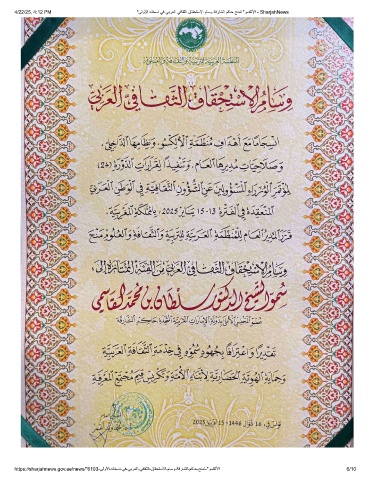 4/22/25, 4:12 PM
"الألكسو" تمنح حاكم الشارقة وسام الاستحقاق الثقافي العربي في نسخته الأولى - SharjahNews
المنظمة العربية للتربية والثقافة والعلوم
وسام الاستحقاق الثقافي العربي
انسجاما مع أهداف منظمة الألكسو، ونظامها الداخلي،
وصلاحيات مديرها العام، وتنفيذا لقرارات الدورة (24)
لمؤتمر الوزراء المسؤولين عن الشؤون الثقافية في الوطن العربي
المنعقدة في الفترة 13-15 يناير 2025، بالمملكة المغربية،
قرر المدير العام للمنظمة العربية للتربية والثقافة والعلوم منح
وسام الاستحقاق الثقافي العربي من الفئة الممتازة إلى،
سمو الشيخ الدكتور سلطان بن محمد القاسمي
عضو المجلس الأعلى بدولة الإمارات العربية المتحدة حاكم الشارقة
تقديرا واعترافا بجهود سموه في خدمة الثقافة العربية
وحماية الهوية الحضارية لأبناء الأمة وتكريس قيم مجتمع المعرفة
تونس في، 16 شوال 1446 - 15
2025
"الألكسو" تمنح حاكم الشارقة وسام الاستحقاق الثقافي العربي في نسخته الأولى
6/10